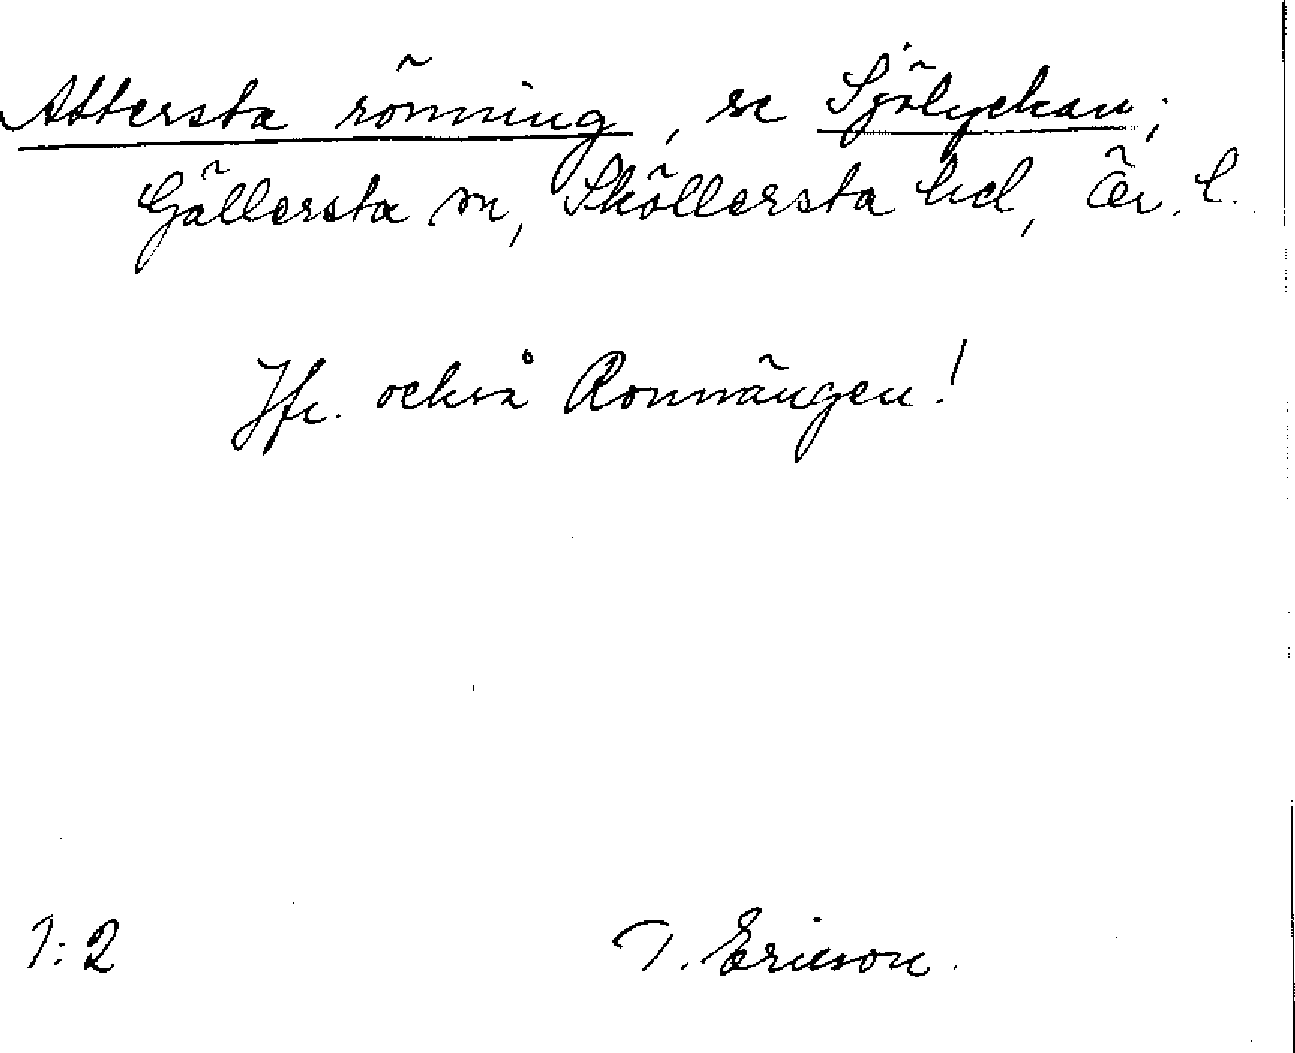 Attersta rönning, se Sjölyckan;
Gällersta sn, Sköllersta hd, Ör. l.
Jfr. också Ronnängen!
1:2
T. Ericson.